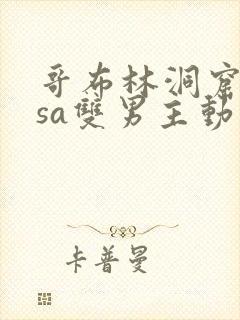 哥布林洞窟
sa雙男主動
卡普曼